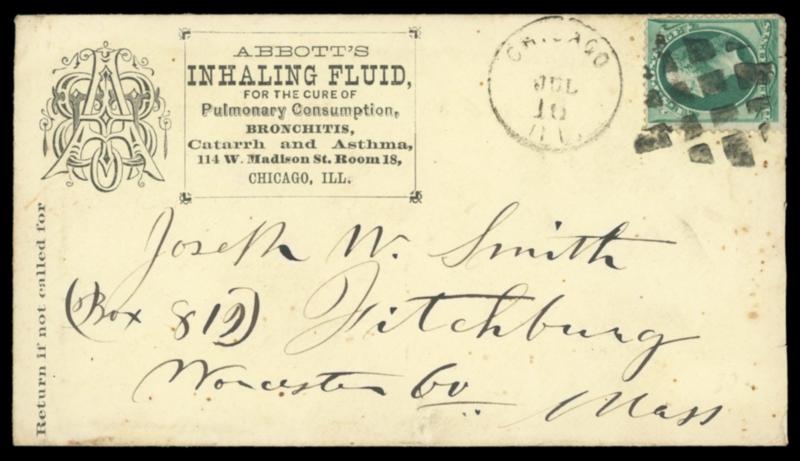 ABBOTT'S
INHALING FLUID,
FOR THE CURE OF
Pulmonary Consumption,
BRONCHITIS,
Catarrh and Asthma,
114 W. Madison St. Room 18,
CHICAGO, ILL.
CHICAGO
JUL
16
ILL.
Return if not called for
Joseph W. Smith
(Box 819) Fitchburg
Worcester Co
Mass